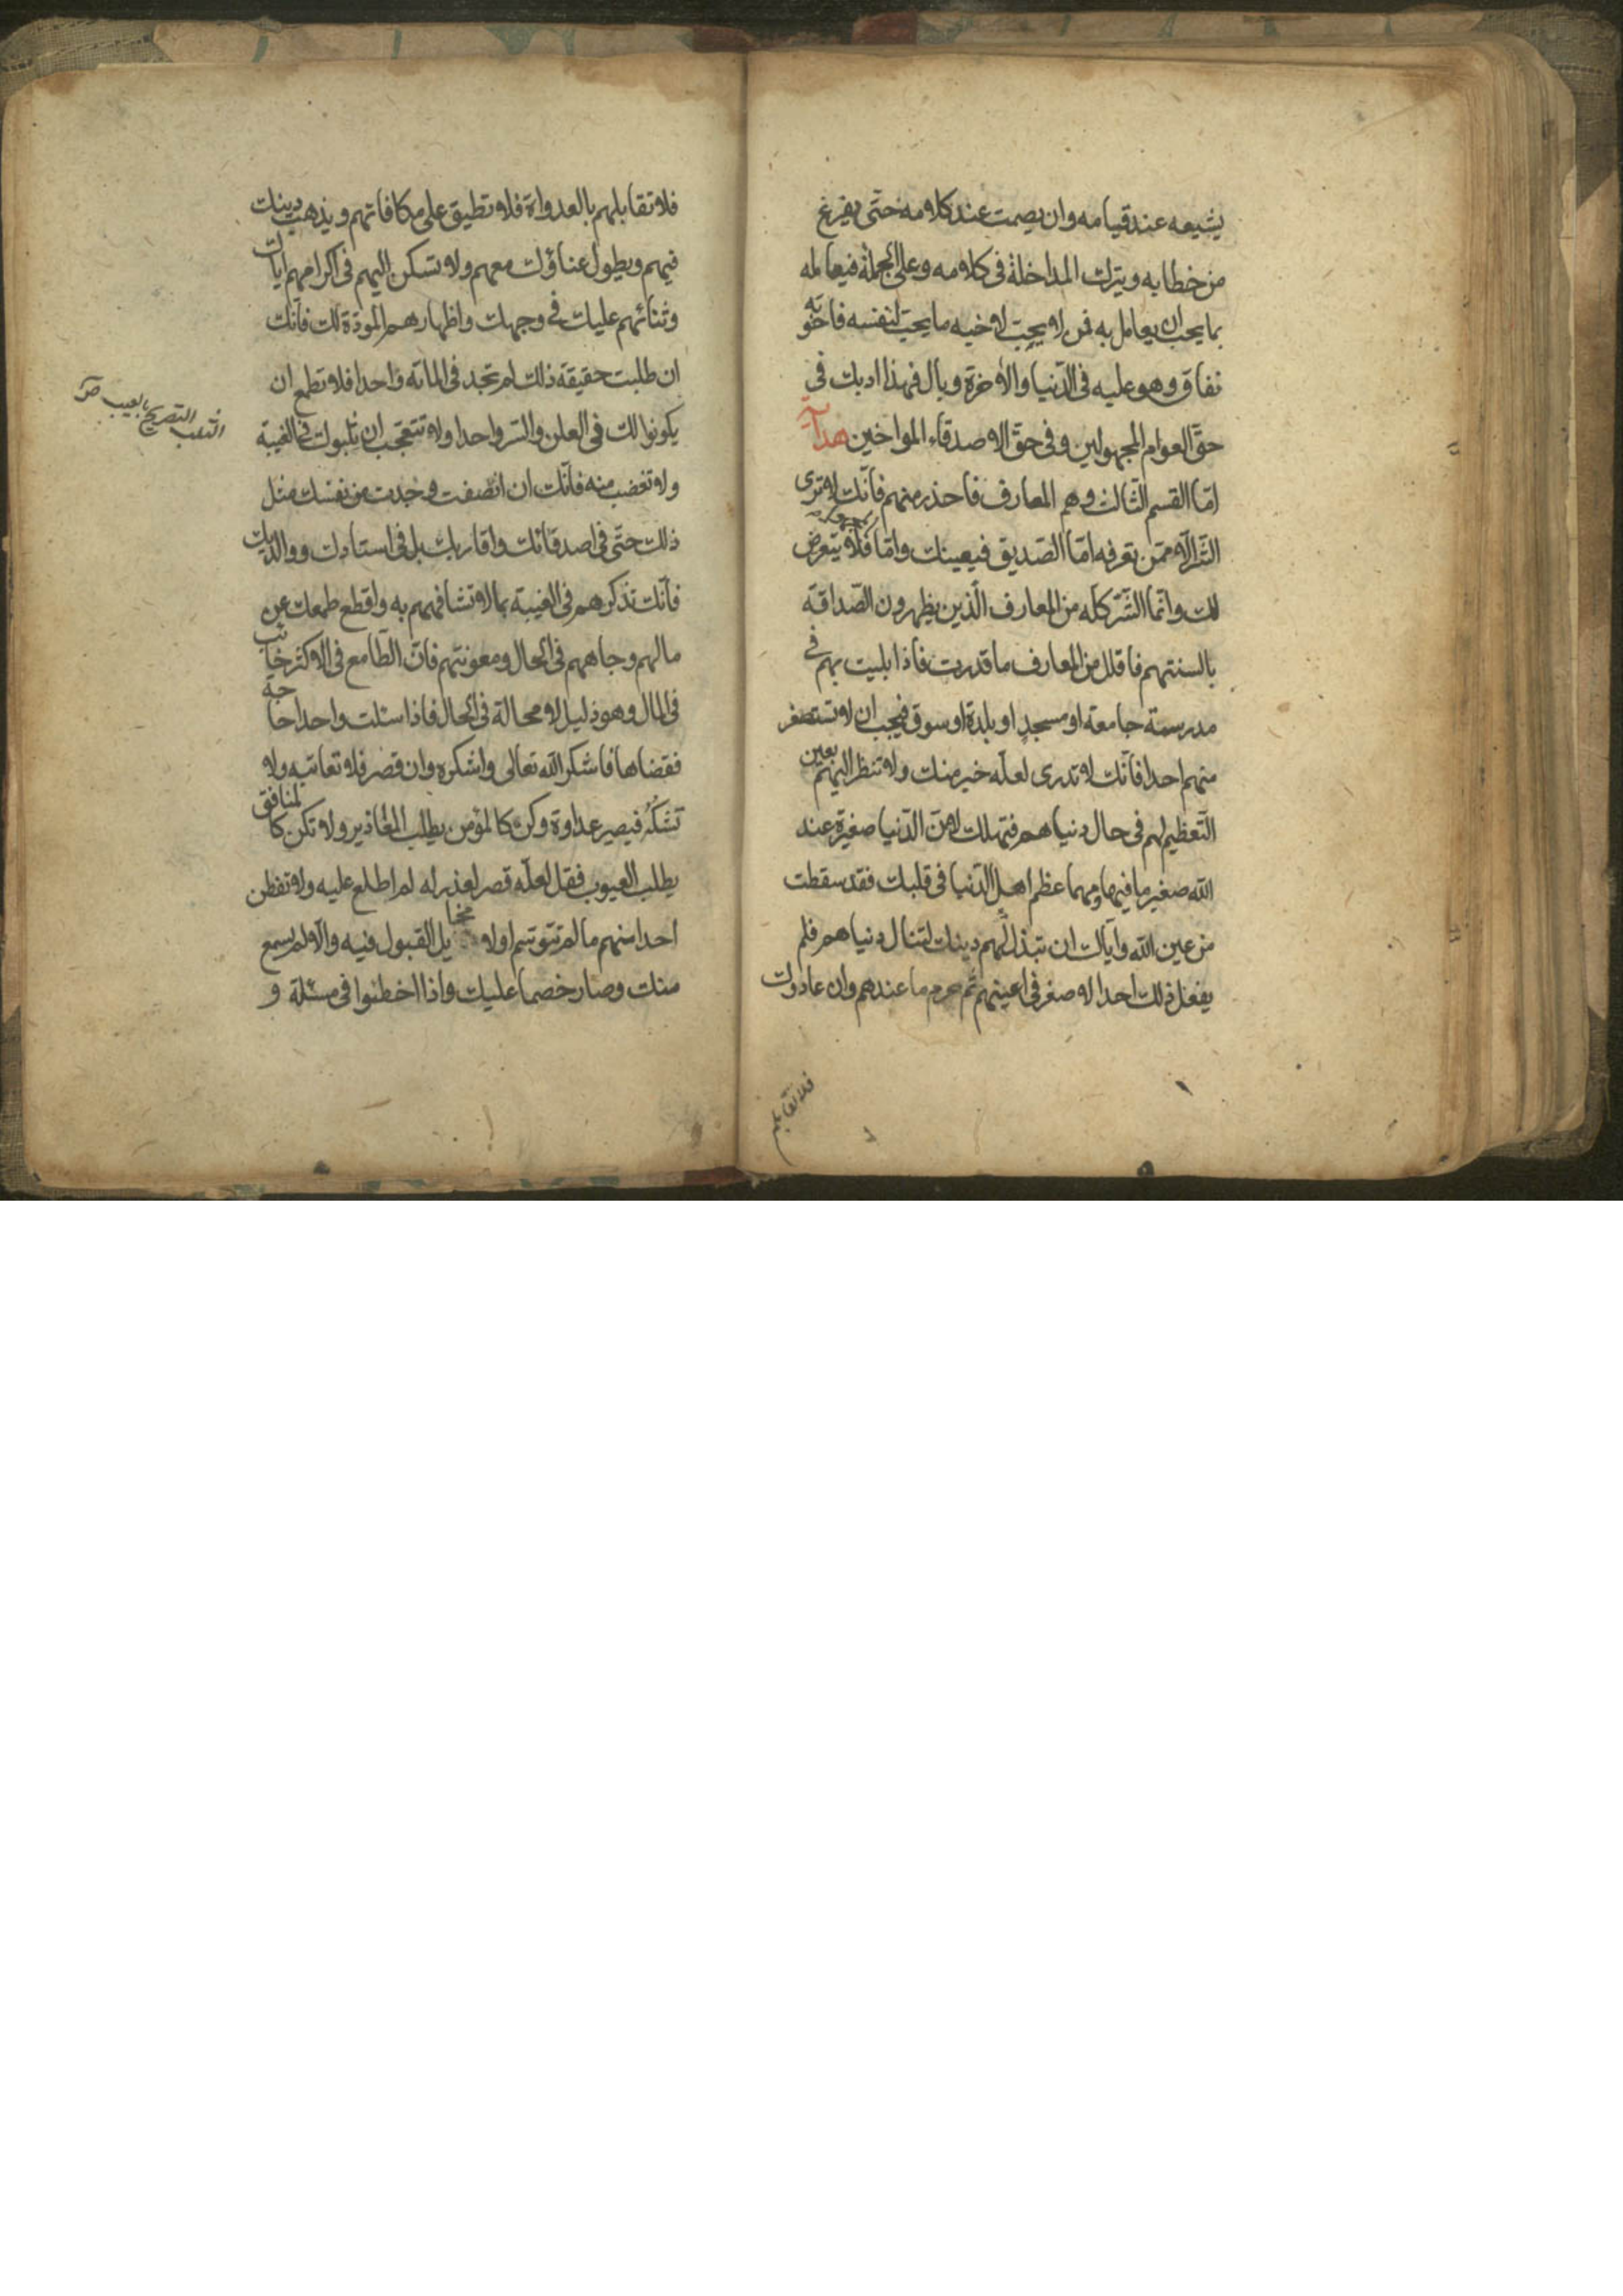 يشيعه عند قيامه وان يصمت عند كلامه حتى يفرغ
من خطابه ويترك المداخلة فى كلامه وعلى الجملة فيعامله
بما يحب ان يعامل به فمن لا يحب لاخيه ما يحب لنفسه فاخوته
نفاق وهو عليه فى الدنيا والاخرة وبال فهذا ادبك فى
حق العوام المجهولين وفى حق الاصدقاء المواخين هدا
امّا القسم الثالث وهم المعارف فاحذر منهم فانّك لا ترى
الشر الّا ممّن تعرفه امّا الصّديق فيعينك وامّا فلا يتعرض
لك وانّما الشّر كلّه من المعارف الّذين يظهرون الصّداقة
بالسنتهم فاقلل من المعارف ما قدرت فاذا بليت بهم فى
مدرسة جامعة او مسجد او بلدة او سوق فيجب ان لا تستصغر
منهم احدا فانّك لا تدرى لعلّه خير منك ولا تنظر اليهم بعين
التّعظيم لهم فى حال دنياهم فتهلك لانّ الدّنيا صغيرة عند
اللّه صغير ما فيها ومهما عظم اهل الدّنيا فى قلبك فقد سقطت
من عين اللّه وايّاك ان تبذل لهم دينك لتنال دنياهم فلم
يفعل ذلك احد الا صغر فى اعينهم ثم حرم ما عندهم وان عادوك
فلا تقابلهم
فلا تقابلهم بالعدواة فلا تطيق على مكافاتهم ويذهب دينك
فيهم ويطول عناؤك معهم ولا تسكن اليهم فى اكرامهم اياك
وثنائهم عليك فى وجهك واظهارهم المودّة لك فانّك
ان طلبت حقيقة ذلك لم تجد فى المائه واحدا فلا تطمع ان
يكونوا لك فى العلن والسّر واحدا ولا تتعجّب ان ثلبوك فى الغيبة
ولا تغضب منه فانّك ان انصفت وجدت من نفسك مثل
ذلك حتّى فى اصدقائك واقاربك بل فى استادك ووالديك
فانّك تذكرهم فى الغيبة بما لا تشافههم به واقطع طمعك عن
مالهم وجاههم فى الحال ومعونتهم فان الطّامع فى الاكثر خائب
فى المال وهو ذليل لا محالة فى الحال فاذا سئلت واحدا حاجة
فقضاها فاشكر اللّه تعالى واشكره وان قصر فلا تعاتبه ولا
تشكه فيصير عداوة وكن كالمؤمن يطلب المعاذير ولا تكن كالمنافق
يطلب العيوب فقل لعلّه قصر لعذر له لم اطلع عليه ولا تفطن
احدا منهم ما لم تتوسّم اولا مخايل القبول فيه والّا لم يسمع
منك وصار خصما عليك واذا اخطئوا فى مسئلة و
الثلب التصريح بالعيب